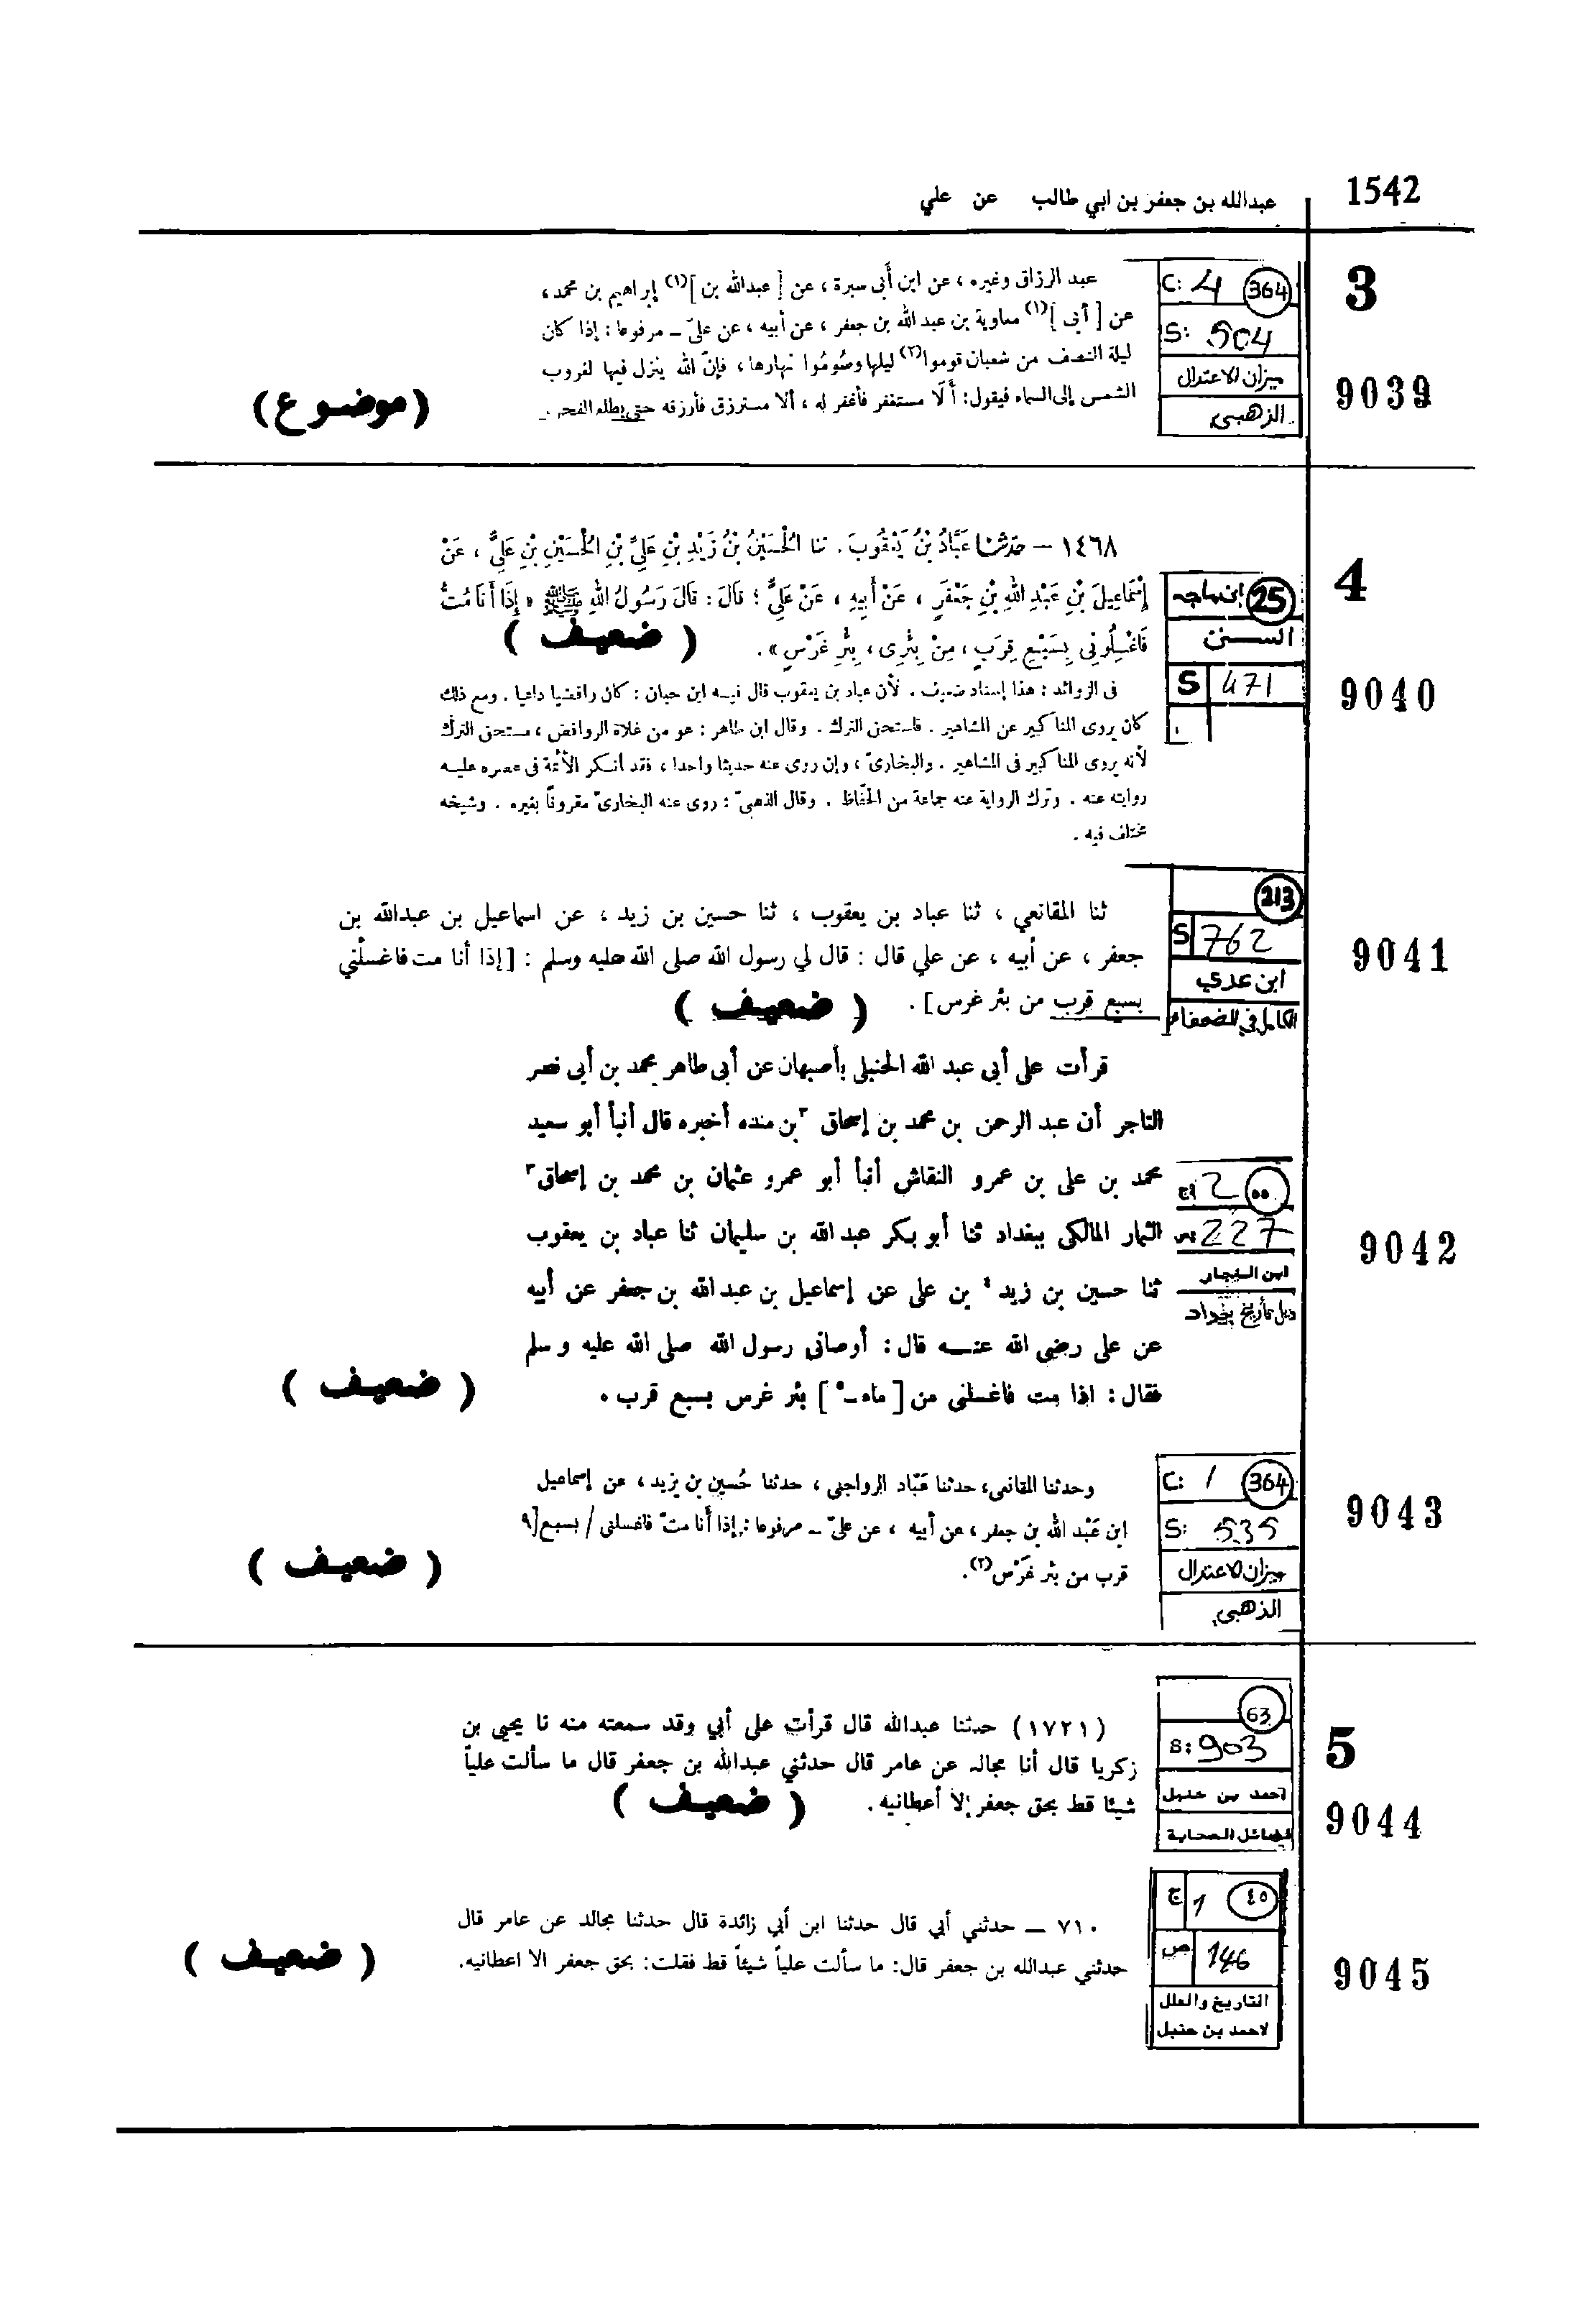 1542
عبدالله بن جعفر بن ابي طالب عن علي
3
9039
C: 4 364
S: 504
ميزان الاعتدال
الذهبي
عبد الرزاق وغيره ، عن ابن أبى سبرة ، عن [ عبدالله بن ](١) إبراهيم بن محمد ،
عن [ أبى ](١) معاوية بن عبد الله بن جعفر ، عن أبيه ، عن علىّ ــ مرفوعا : إذا كان
ليلة النصف من شعبان قوموا(٢) ليلها وصُومُوا نهارها ، فإنّ الله ينزل فيها لغروب
الشمس إلى السماء فيقول : ألَا مستغفر فأغفر له ، ألا مسترزق فأرزقه حتى يطلع الفجر .
(موضوع)
4
9040
25 ابن ماجه
السنن
S 471
١٤٦٨ – حدثنا عَبَّادُ بْنُ يَعْقُوبَ . ثنا الْحُسَيْنُ بْنُ زَيْدِ بْنِ عَلِيِّ بْنِ الْحُسَيْنِ بْنِ عَلِيٍّ ، عَنْ
إِسْمَاعِيلَ بْنِ عَبْدِ اللهِ بْنِ جَعْفَرٍ ، عَنْ أَبِيهِ ، عَنْ عَلِيٍّ ؛ قَالَ : قَالَ رَسُولُ اللهِ ﷺ « إِذَا أَنَا مُتُّ
فَاغْسِلُونِى بِسَبْعِ قِرَبٍ ، مِنْ بِئْرِى ، بِئْرِ غَرْسٍ » .
( ضعيف )
فى الزوائد : هذا إسناد ضعيف . لأن عباد بن يعقوب قال فيه ابن حبان : كان رافضيا داعيا . ومع ذلك
كان يروى المناكير عن المشاهير . فاستحق الترك . وقال ابن طاهر : هو من غلاة الروافض ، مستحق الترك
لأنه يروى المناكير فى المشاهير . والبخارىّ ، وإن روى عنه حديثا واحدا ، فقد أنكر الأئمة فى عصره عليه
روايته عنه . وترك الرواية عنه جماعة من الحفّاظ . وقال الذهبىّ : روى عنه البخارىّ مقرونًا بغيره . وشيخه
مختلف فيه .
9041
213
S 762
ابن عدي
الكامل في الضعفاء
ثنا المقانعي ، ثنا عباد بن يعقوب ، ثنا حسين بن زيد ، عن اسماعيل بن عبدالله بن
جعفر ، عن أبيه ، عن علي قال : قال لي رسول الله صلى الله عليه وسلم : [إذا أنا مت فاغسلْني
بسبع قرب من بئر غرس] .
( ضعيف )
9042
ج 2 ٥٥
ص 227
ابن النجار
ذيل تأريخ بغداد
قرأت على أبى عبد الله الحنبلى بأصبهان عن أبى طاهر محمد بن أبى نصر
التاجر أن عبد الرحمن بن محمد بن إسحاق ٢بن منده أخبره قال أنبأ أبو سعيد
محمد بن على بن عمرو النقاش أنبأ أبو عمرو عثمان بن محمد بن إسحاق٢
التمار المالكى ببغداد ثنا أبو بكر عبد الله بن سليمان ثنا عباد بن يعقوب
ثنا حسين بن زيد٤ بن على عن إسماعيل بن عبد الله بن جعفر عن أبيه
عن على رضى الله عنه قال : أوصانى رسول الله صلى الله عليه وسلم
فقال : اذا مت فاغسلنى من [ ماء ــ٥ ] بئر غرس بسبع قرب .
( ضعيف )
9043
C: 1 364
S: 535
ميزان الاعتدال
الذهبي
وحدثنا المقانعى، حدثنا عَبّاد الرواجنى ، حدثنا حُسين بن يزيد ، عن إسماعيل
ابن عَبْد الله بن جعفر ، عن أبيه ، عن علىّ ــ مرفوعا : إذا أنا متّ فاغسلنى / بسبع[٩
قرب من بئر غَرْس(٢).
( ضعيف )
5
9044
63
S: 903
احمد بن حنبل
فضائل الصحابة
(١٧٢١) حدثنا عبدالله قال قرأت على أبي وقد سمعته منه نا يحيى بن
زكريا قال أنا مجالد عن عامر قال حدثني عبدالله بن جعفر قال ما سألت علياً
شيئا قط بحق جعفر إلا أعطانيه .
( ضعيف )
9045
ج 1 ٤٥
ص 146
التاريخ والعلل
لاحمد بن حنبل
٧١٠ ــ حدثني أبي قال حدثنا ابن أبي زائدة قال حدثنا مجالد عن عامر قال
حدثني عبدالله بن جعفر قال: ما سألت علياً شيئاً قط فقلت: بحق جعفر الا اعطانيه.
( ضعيف )